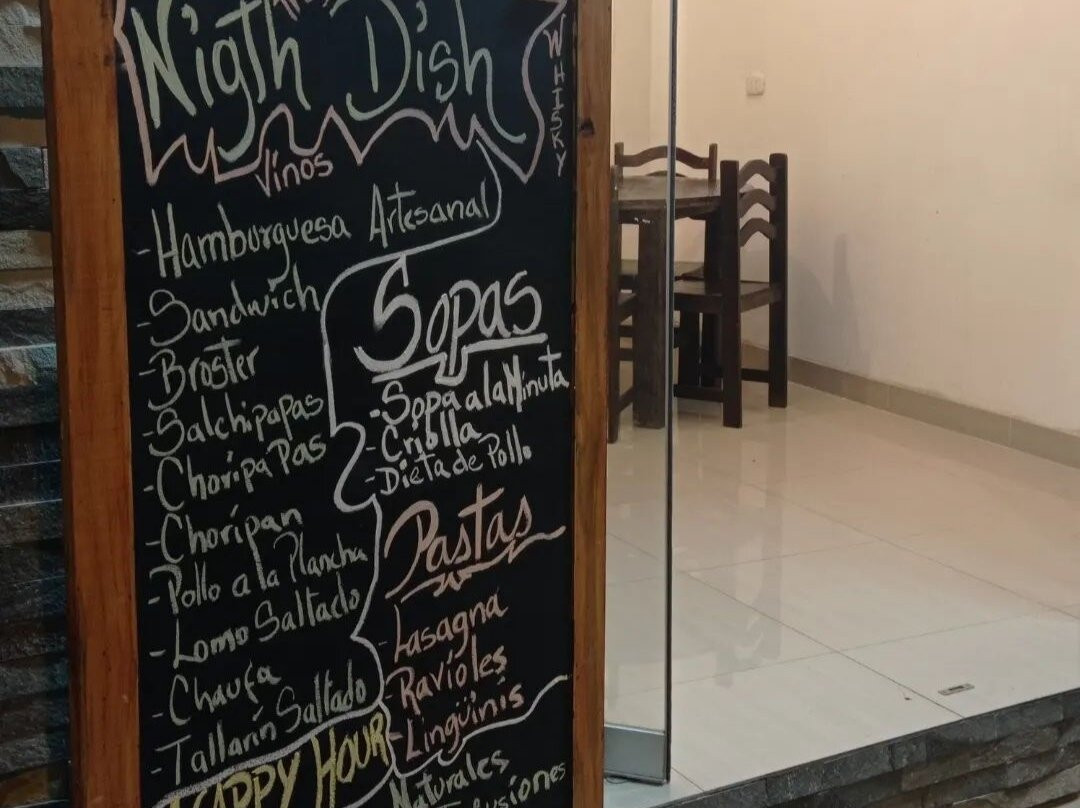 Nigth Dish
WHISKY
Vinos
-Hamburguesa Artesanal
-Sandwich
-Broster
-Salchipapas
-ChoripaPas
-Choripan
-Pollo a la Plancha
-Lomo Saltado
-Chaufa
-Tallarín Saltado
Sopas
-Sopa a la Minuta
-Criolla
-Dieta de Pollo
Pastas
-Lasagna
-Ravioles
-Lingüinis
HAPPY HOUR
Naturales